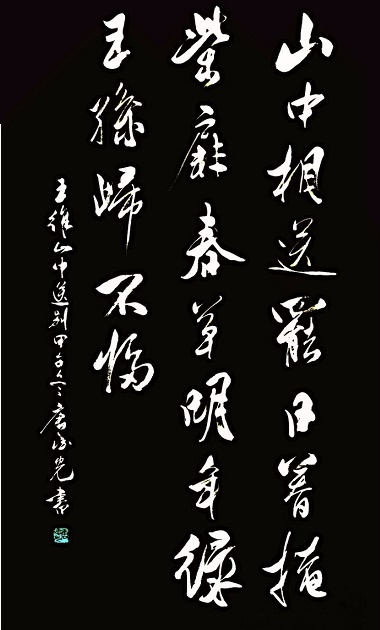 山中相送罷日暮掩
柴扉春草明年綠
王孫歸不歸
王維山中送别甲午冬唐光書